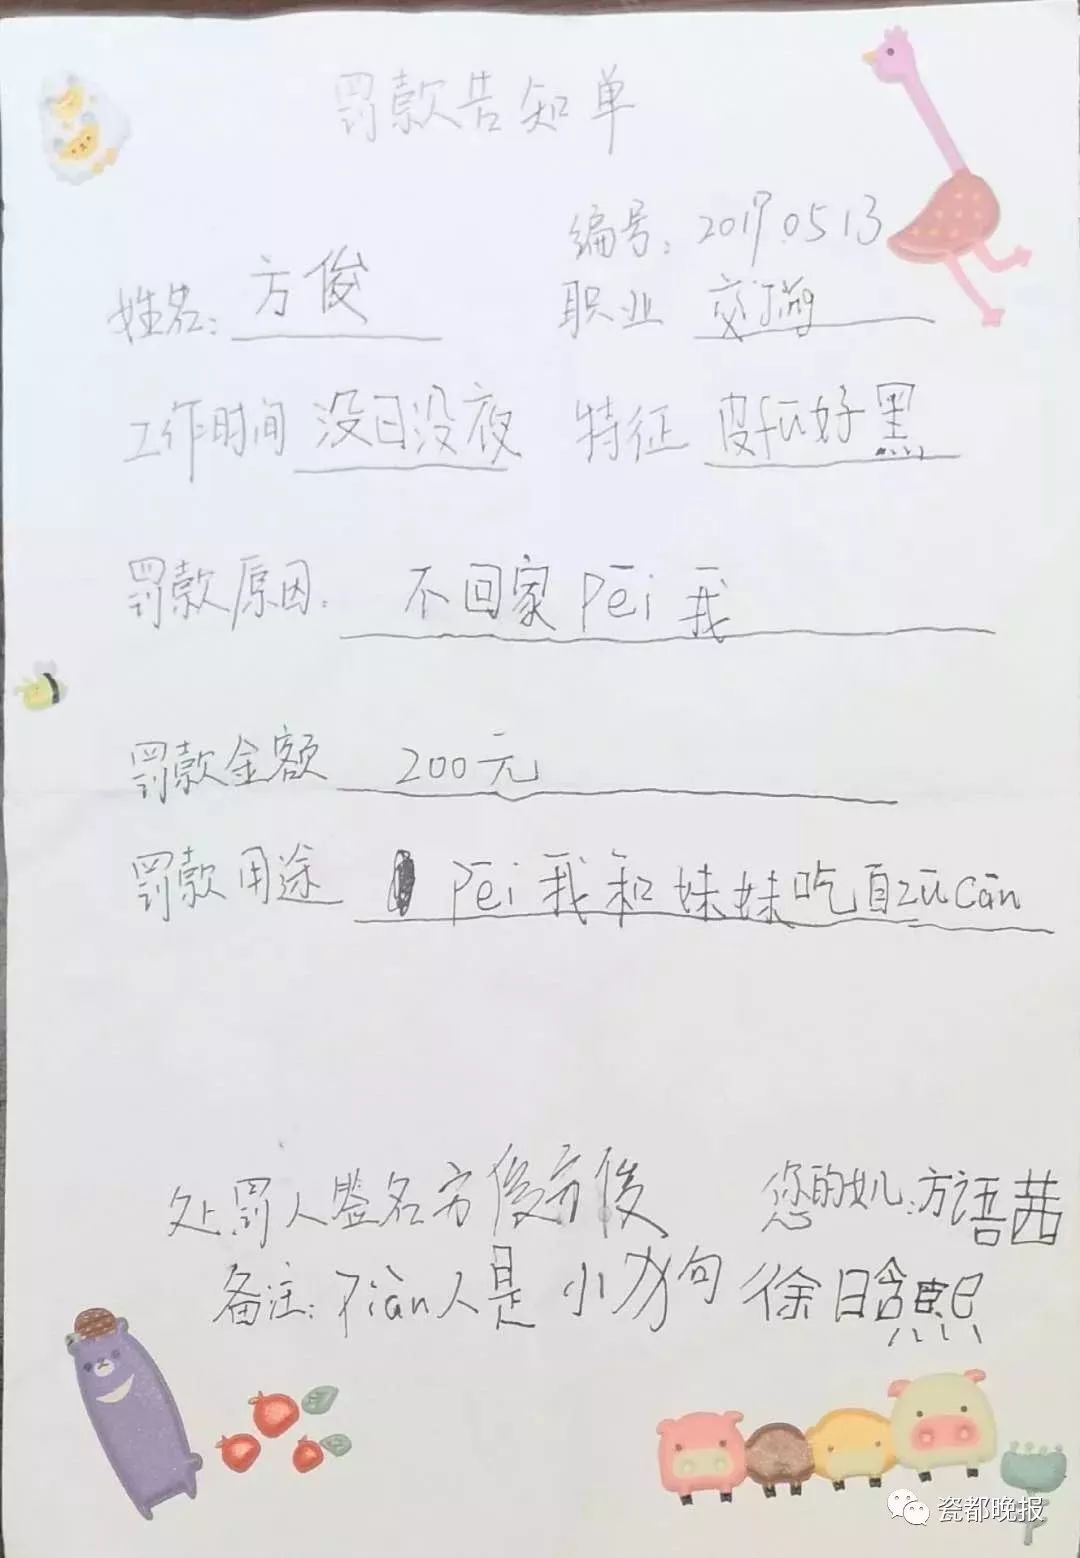 罚款告知单
编号：20170513
姓名：方俊 职业 交jǐng
工作时间 没日没夜 特征 皮fū好黑
罚款原因：不回家Péi我
罚款金额 200元
罚款用途 Péi我和妹妹吃自zùcān
处罚人签名方俊方俊 您的女儿：方语茜
备注：Piàn人是小狗 徐晗熙
瓷都晚报